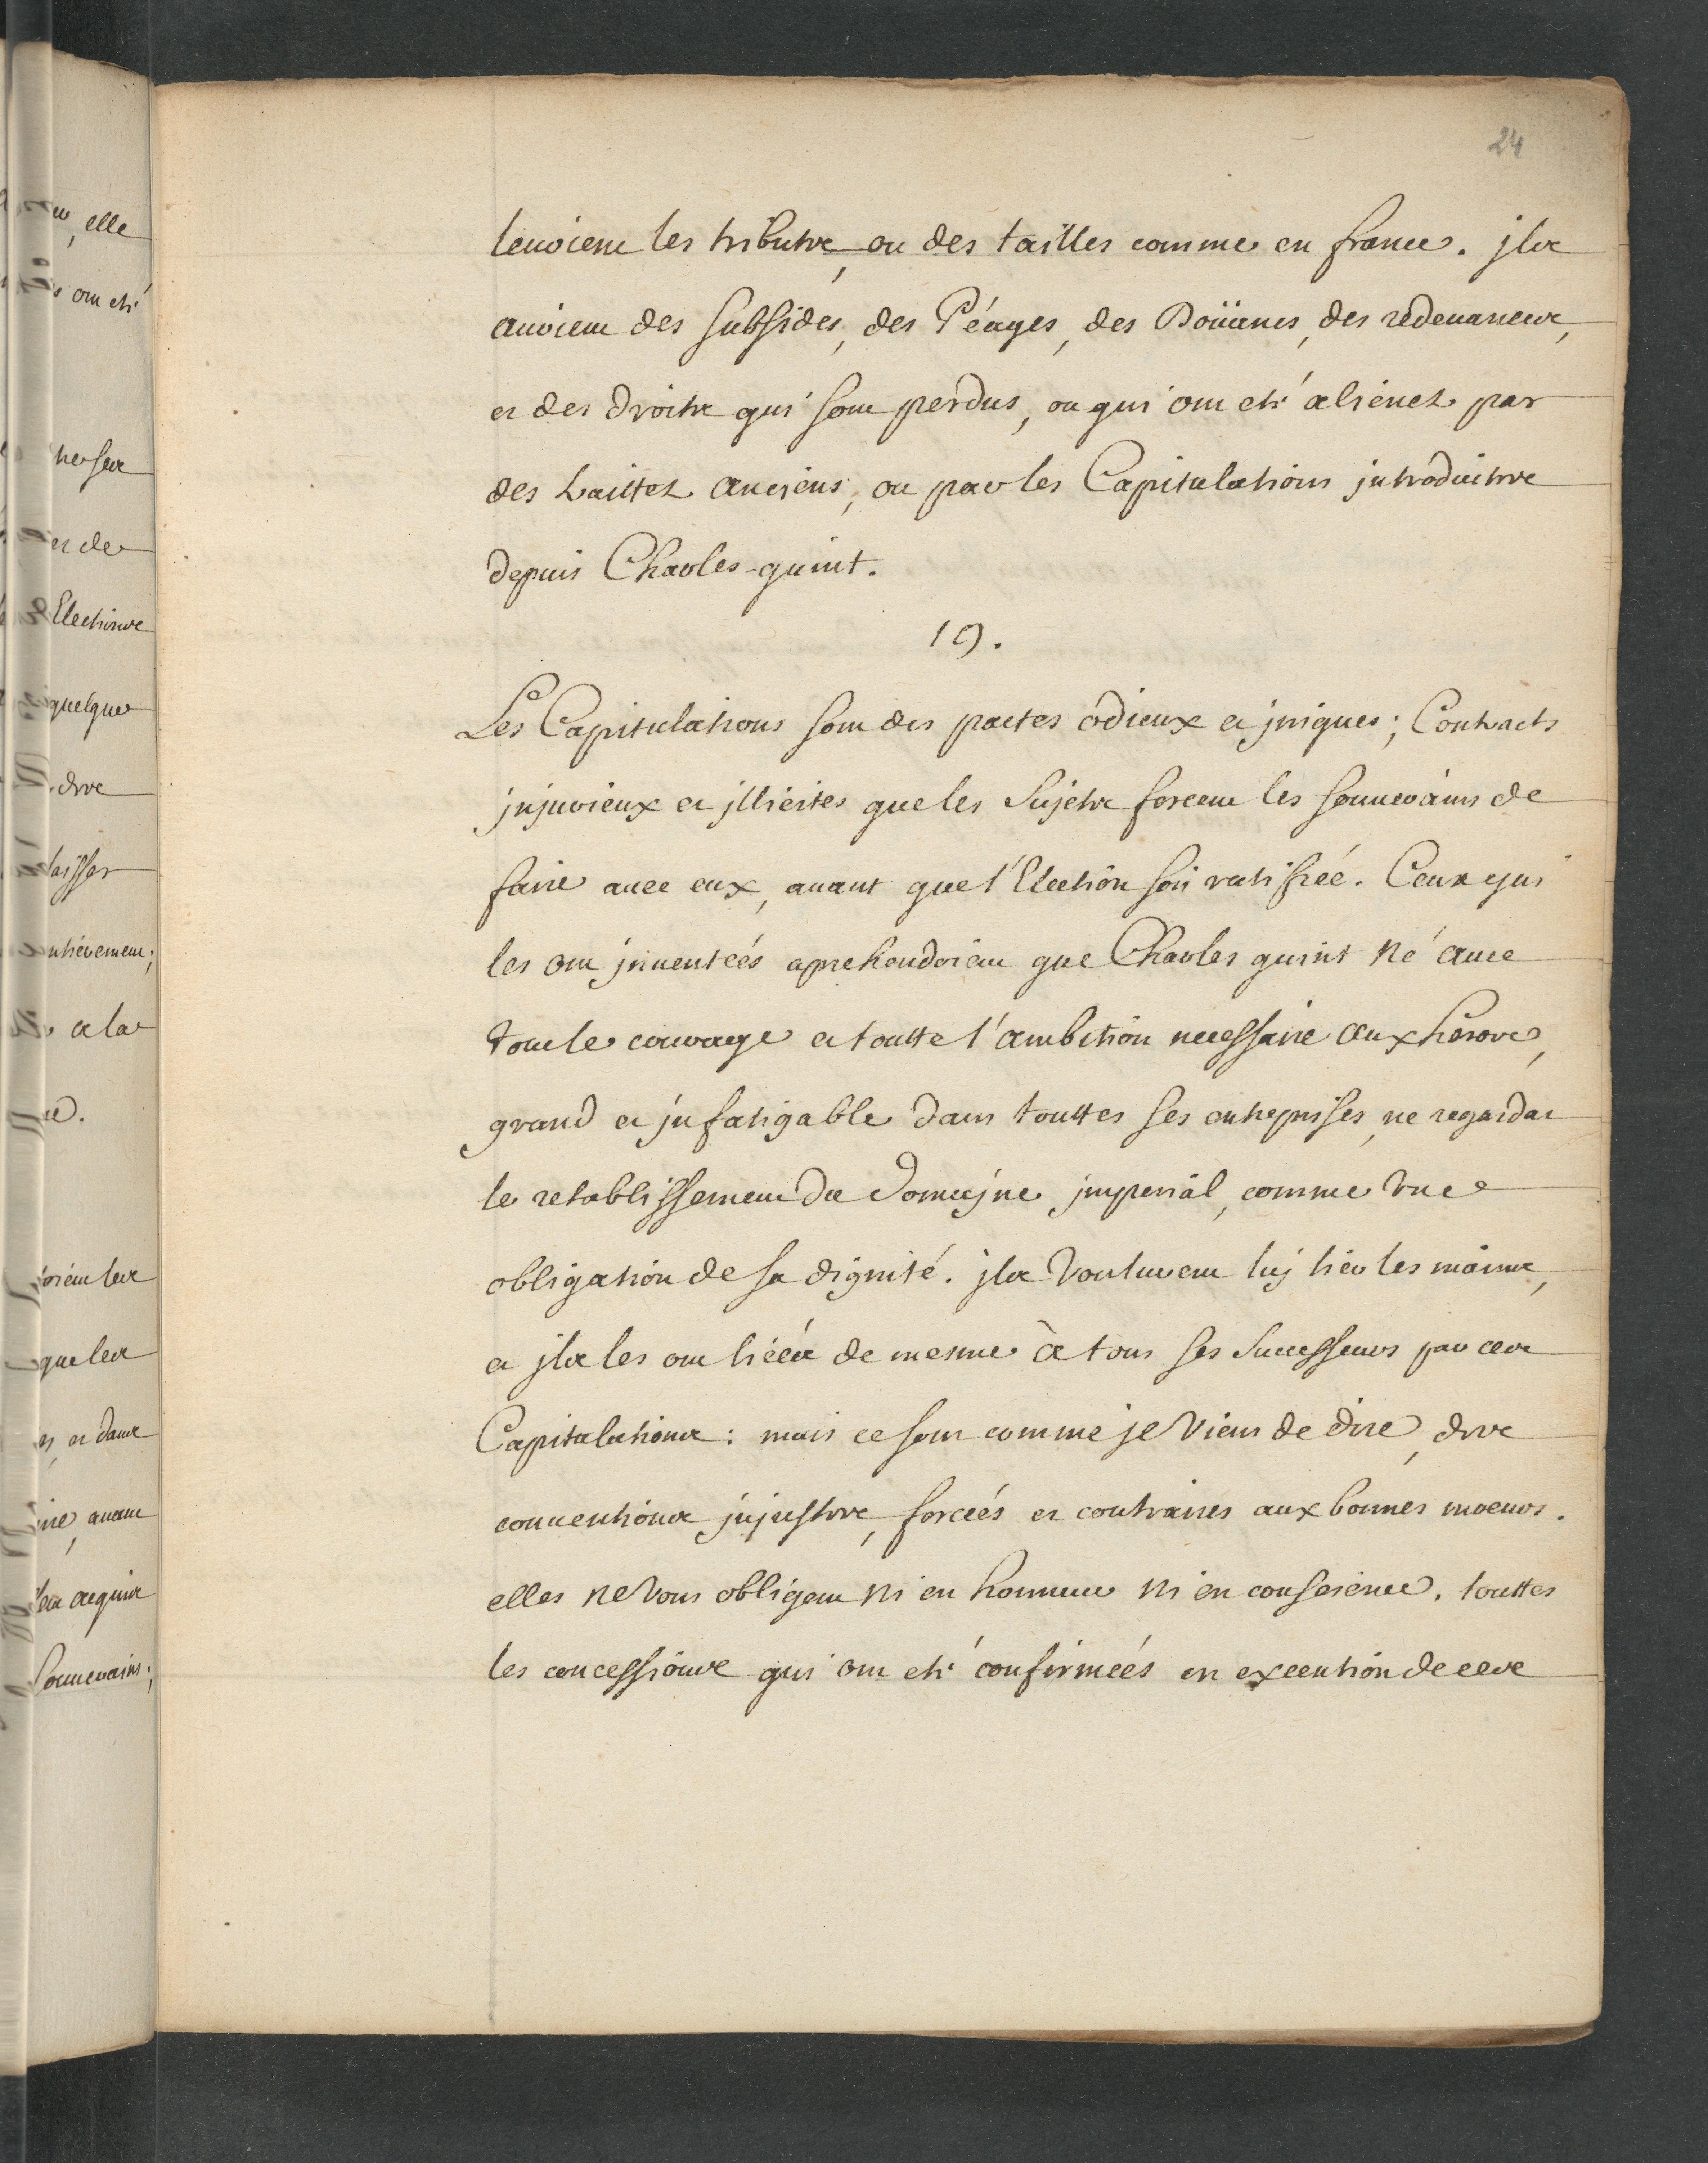 24
levoient les tributs, ou des tailles comme en france. jls
avoient des subsides, des Péages, des Doüanes, des redevances,
et des droits qui sont perdus, ou qui ont eté alienez par
des traittez anciens, ou par les Capitulations introduites
depuis Charles-quint.
19.
Les Capitulations sont des pactes odieux et jniques; Contracts
jnjurieux et jllicites que les Sujets forcent les souverains de
faire avec eux, avant que l'Election soit ratifiée. Ceux qui
les ont jnventeés aprehendoient que Charles quint né avec
tout le courage et toutte l'ambition necessaire aux heros,
grand et jnfatigable dans touttes ses entreprises, ne regardat
le retablissement du Domajne jmperial, comme vne
obligation de sa dignité. jls voulurent luj lier les mains,
et jls les ont liées de mesme à tous ses Successeurs par ces
Capitulations: mais ce sont comme je viens de dire, des
conventions jnjustes, forceés et contraires aux bonnes moeurs.
elles ne vous obligent ni en honneur ni en conscience. touttes
les concessions qui ont eté confirmeés en execution de ces
elle
ont eté
et de
Elections
quelque
des
laisser
entierement;
et la
que les
et dans
avant
acquis
Souverains;